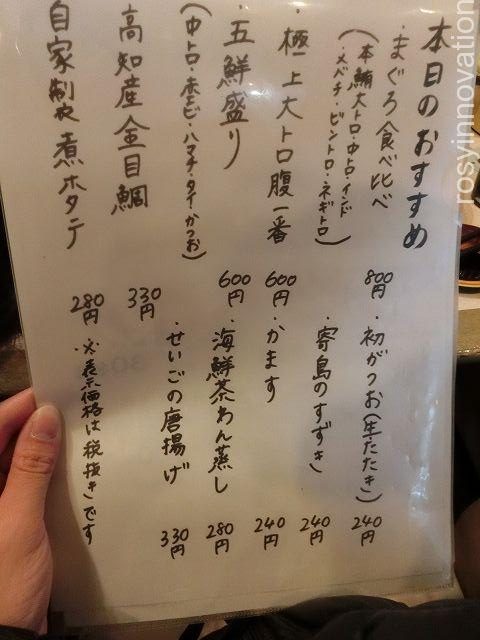 本日のおすすめ
・まぐろ食べ比べ 800円
(本鮪大トロ・中トロ・インド
・メバチ・ビントロ・ネギトロ)
・極上大トロ腹一番 600円
・五鮮盛り 600円
(中トロ・赤エビ・ハマチ・タイ・かつお)
高知産金目鯛 330円
自家製煮ホタテ 280円
・初がつお(生・たたき) 240円
・寄島のすずき 240円
・かます 240円
・海鮮茶わん蒸し 280円
・せいごの唐揚げ 330円
・※表示価格は税抜きです
rosyinnovation